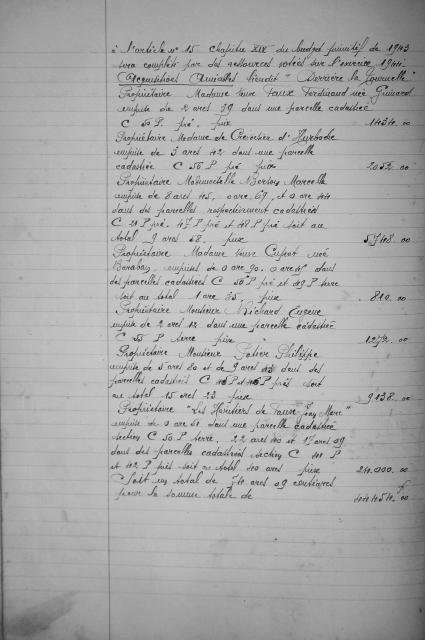 à l'article n° 15 chapitre XIX du budget primitif de 1943
sera complété par des ressources votées sur l'exercice 1944.
Acquisitions Amiables lieudit "Derrière la Tournelle"
Propriétaire Madame Veuve Faux Ferdinand née Guinard
emprise de 2 ares 39 dans une parcelle cadastrée
C 50 P. pré. prix 1434.00
Propriétaire Madame de Crevecoeur d'
emprise de 3 ares 42 dans une parcelle
cadastrée C 56 P pré prix 2052.00
Propriétaire Mademoiselle Marcelle
emprise de 8 ares 45, 0 are 69, et 0 are 44
dans des parcelles respectivement cadastrées
C 21 P pré, 47 P pré et 48 P pré soit au
total 9 ares 58. prix 5748.00
Propriétaire Madame Veuve née
emprises de 0 are 90. 0 are 45 dans
des parcelles cadastrées C 56 P pré et 49 P terre
soit au total 1 are 35, prix 810.00
Propriétaire Monsieur Richard Eugène
emprise de 2 ares 12 dans une parcelle cadastrée
C 55 P terre prix 1272.00
Propriétaire Monsieur Philippe
emprise de 5 ares 80 et de 9 ares 43 dans des
parcelles cadastrées C et prés soit
au total 15 ares 23 prix 9138.00
Propriétaire "Les Héritiers de Faux Jean Marc"
emprise de 0 are 60 dans une parcelle cadastrée
section C 50 P terre, 22 ares 40 et 17 ares 09
dans des parcelles cadastrées section C 40 P
et 42 P prés soit au total 40 ares prix 24.000.00
Soit un total de 74 ares 09 centiares
pour la somme totale de 44454.00